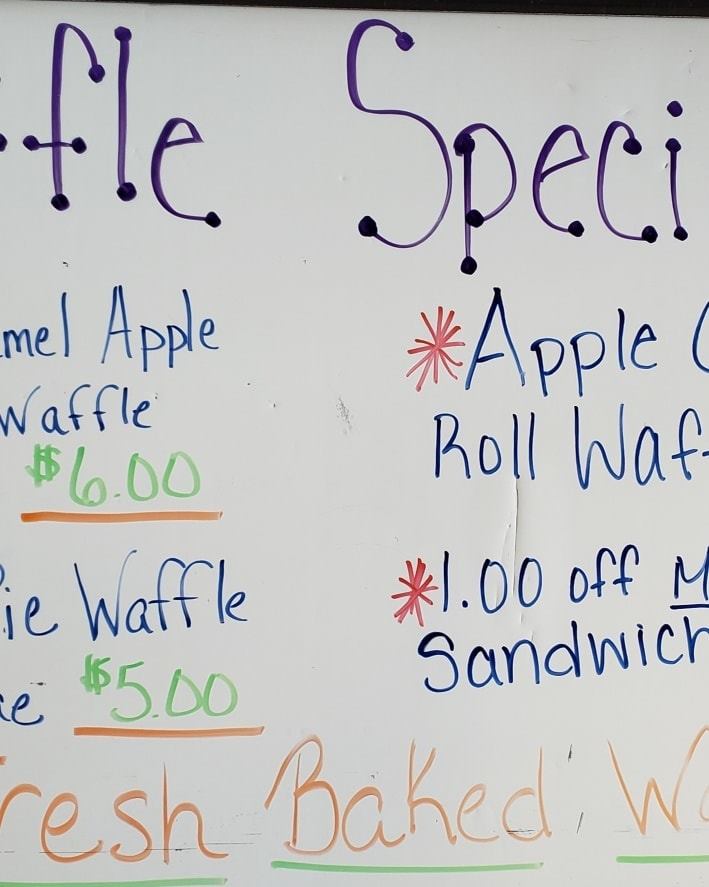 ffle Speci
mel Apple
Waffle
$6.00
ie Waffle
$5.00
*Apple
Roll Waf
*1.00 off M
Sandwich
resh Baked Wa